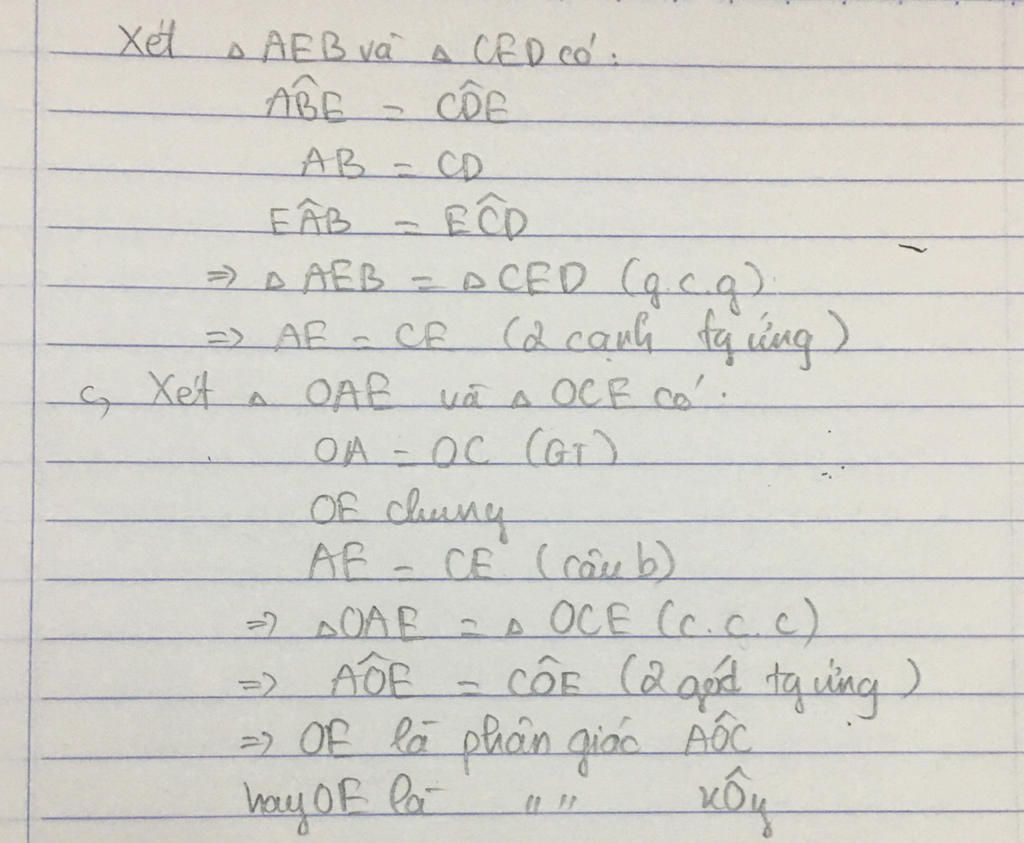 Xét △ AEB và △ CED có:
AB̂E = CD̂E
AB = CD
EÂB = EĈD
⇒ △ AEB = △ CED (g.c.g)
⇒ AE = CE (2 cạnh tg ứng)
c, Xét △ OAE và △ OCE có:
OA = OC (GT)
OE chung
AE = CE (câu b)
⇒ △OAE = △ OCE (c.c.c)
⇒ AÔE = CÔE (2 góc tg ứng)
⇒ OE là phân giác AÔC
hay OE là " " xÔy